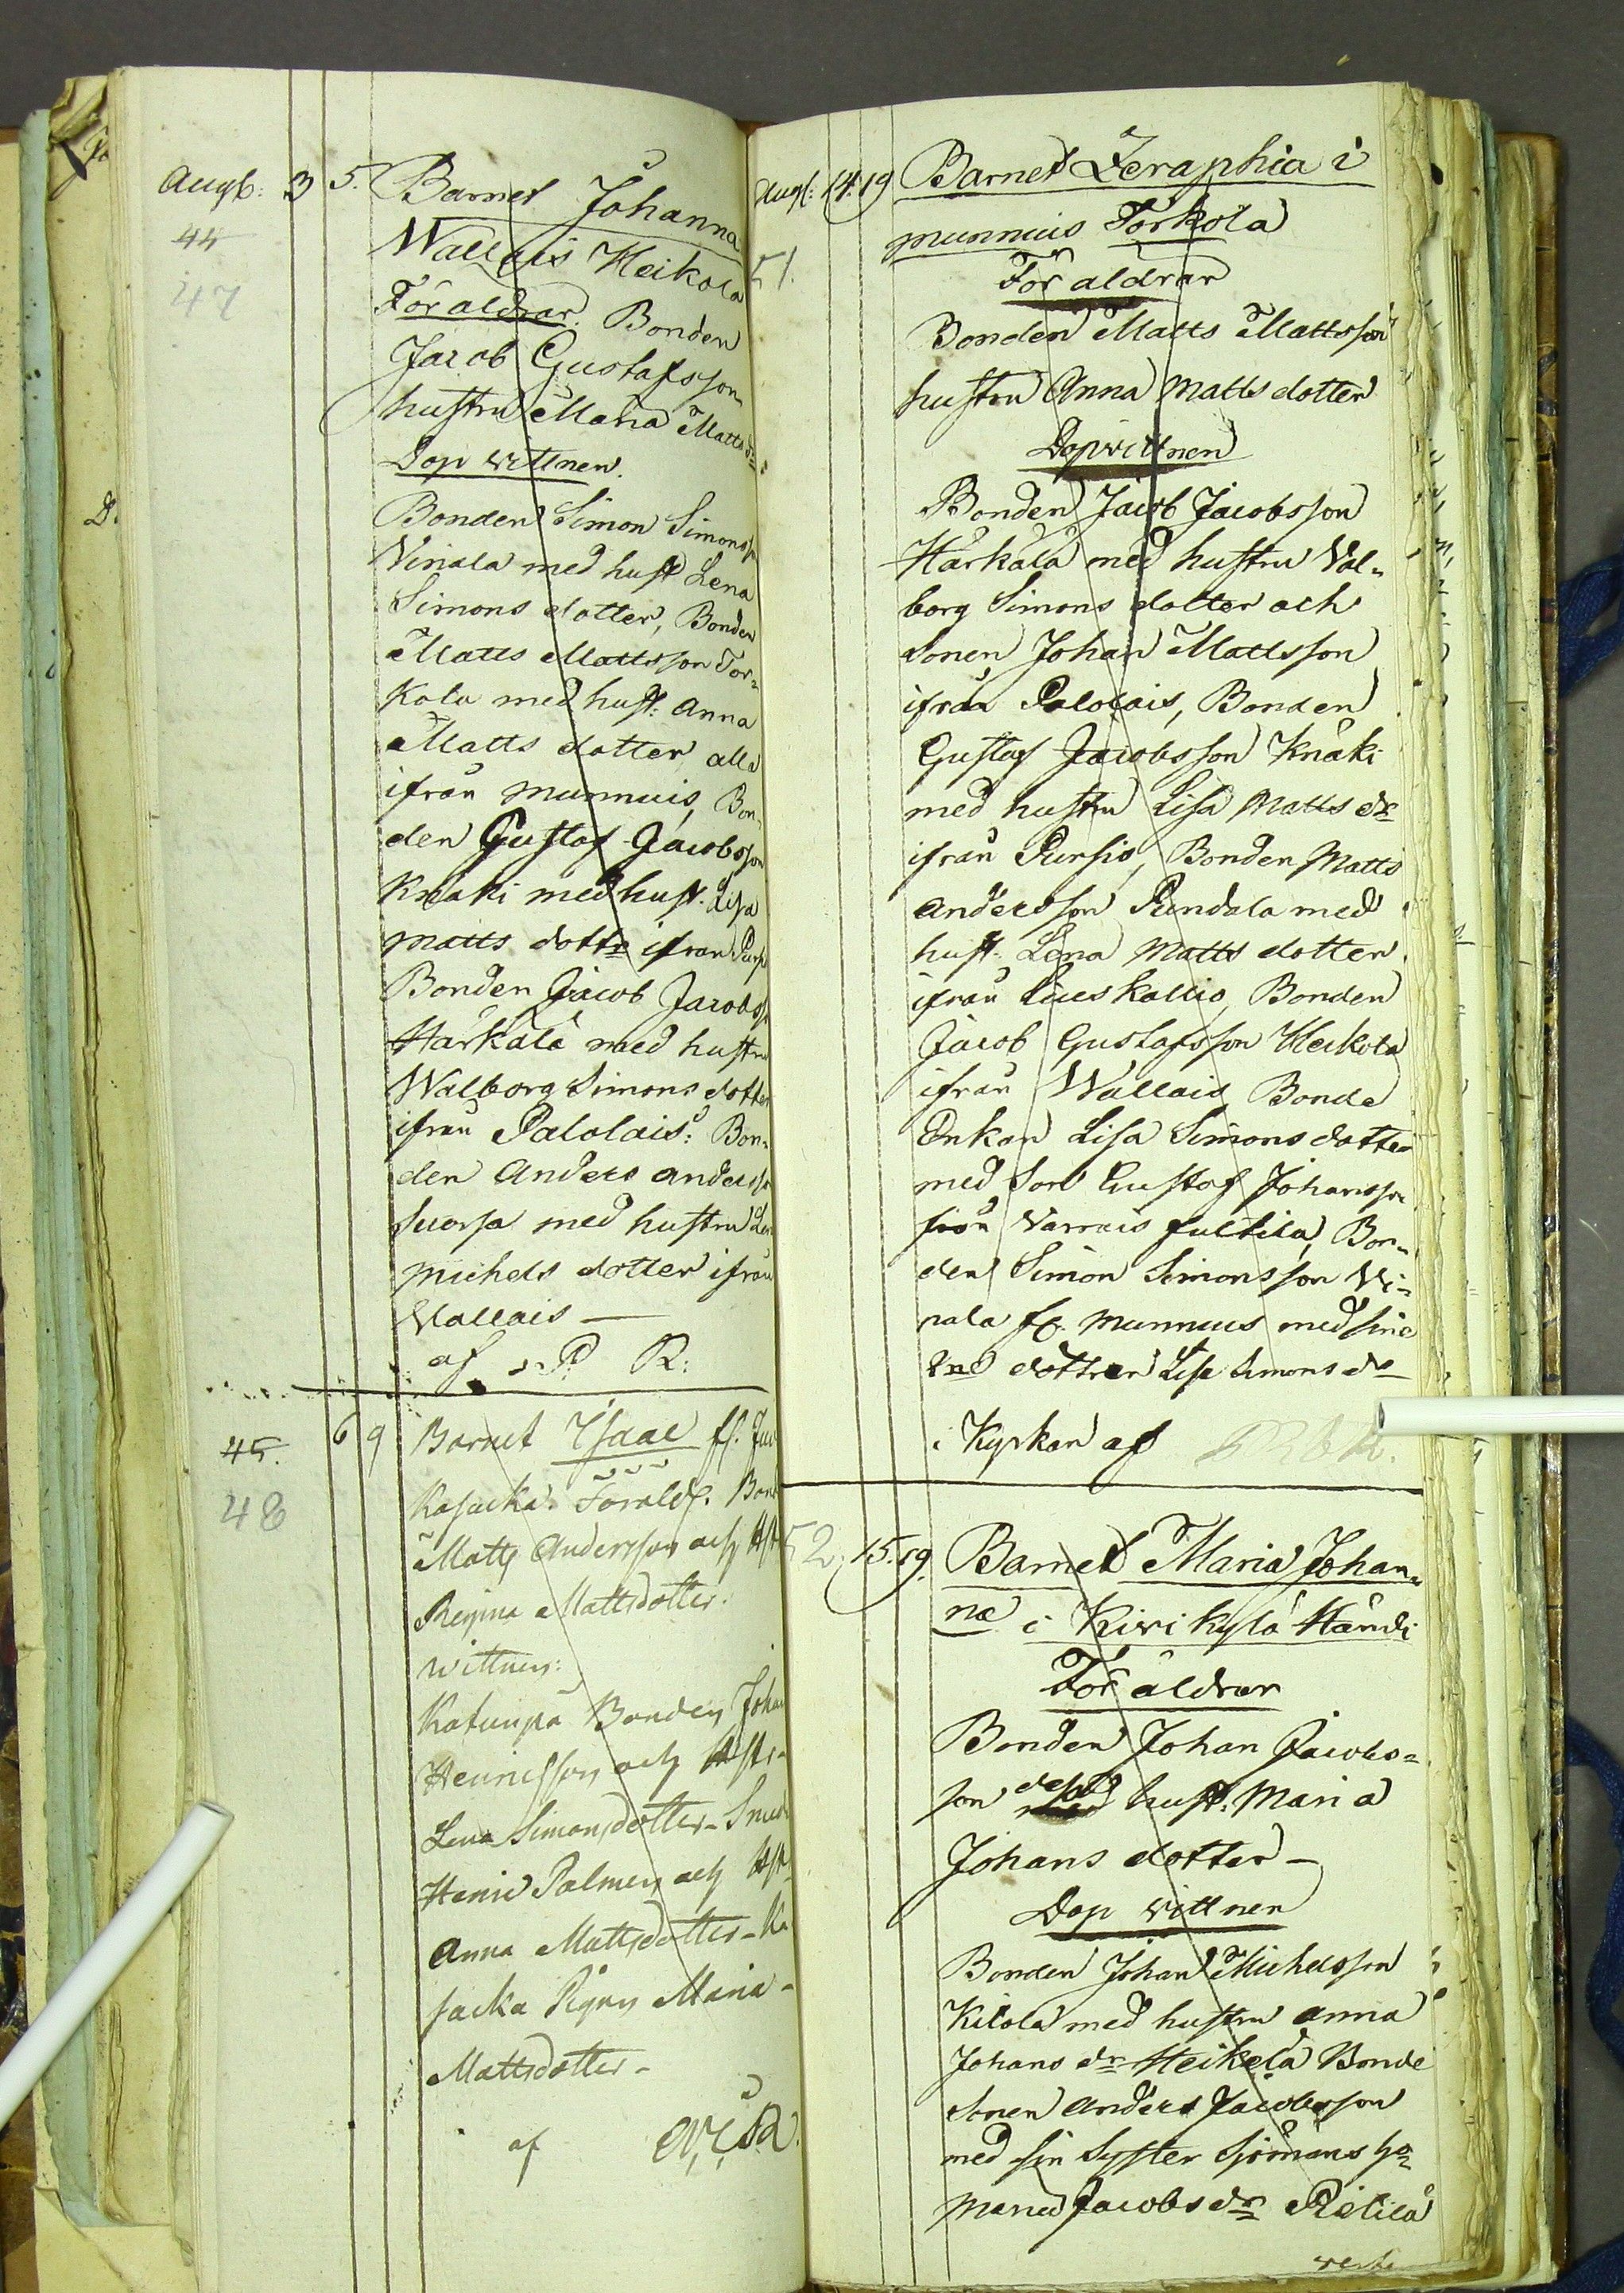 Augt: 3 5. Barnet Johanna
44
47
Wallais Heikola
Föräldrar. Bonden
Jacob Gustafsson
hustru Maria Matts dr
Dop wittnen.
Bonden Simon Simonss
Ninala med hust Lena
Simons dotter, Bonden
Matts Mattsson Tor-
kola med hust: Anna
Matts dotter alla
ifrån Munnuis, Bon-
den Gustaf Jacobsson
Knaki med hust. Lisa
Matts dottr ifrån Purs
Bonden Jacob Jacobss
Härkälä med hustru
Walborg Simons dotter
ifrån Palolais: Bon-
den Anders Anderss
Suorsa med hustru
Michels dotter ifrån
Wallais —
af P R:
45. 6 9 Barnet Isaac
48
Kasacka. Föräld. Bond
Matts Andersson och Hst
Regina Mattsdotter.
Wittnen:
Katunpä Bonden Johan
Henricsson och Hstr-
Lena Simonsdotter - Smed
Henric Palmen och Hst
Anna Mattsdotter - Ka
sacka Pigan Maria -
Mattsdotter -
af
Augt: 14. 19 Barnet Seraphia i
51.
Munnuis Torkola
Föräldrar
Bonden Matts Mattsson
hustru Anna Matts dotter
Dopwittnen
Bonden Jacob Jacobsson
Härkälä med hustru Val-
borg Simons dotter och
Sonen Johan Mattsson
ifrån Palolais, Bonden
Gustaf Jacobsson Knaki
med hustru Lisa Matts dr
ifrån Pursis, Bonden Matts
Andersson Pundola med
hust. Lena Matts dotter
ifrån Liuskallio, Bonden
Jacob Gustafsson Heikola
ifrån Wallais, Bonde
Enkan Lisa Simons dotter
med Son Gustaf Johansson
från Varrais Bon-
den Simon Simonsson Ni-
nala Munnuis med sine
2ne döttrar Lisa Simons dr
i Kyrkan af
52 15. 19. Barnet Maria Johan-
na i Kivikylä Händi
Föräldrar
Bonden Johan Jacobs-
son dess hust: Maria
Johans dotter —
Dop wittnen
Bonden Johan Michelsson
Kilola med hustru Anna
Johans dr Heikelä Bonde
Sonen Anders Jacobsson
med sin Syster Sjömans h
Maria Jacobs dr Riälilä